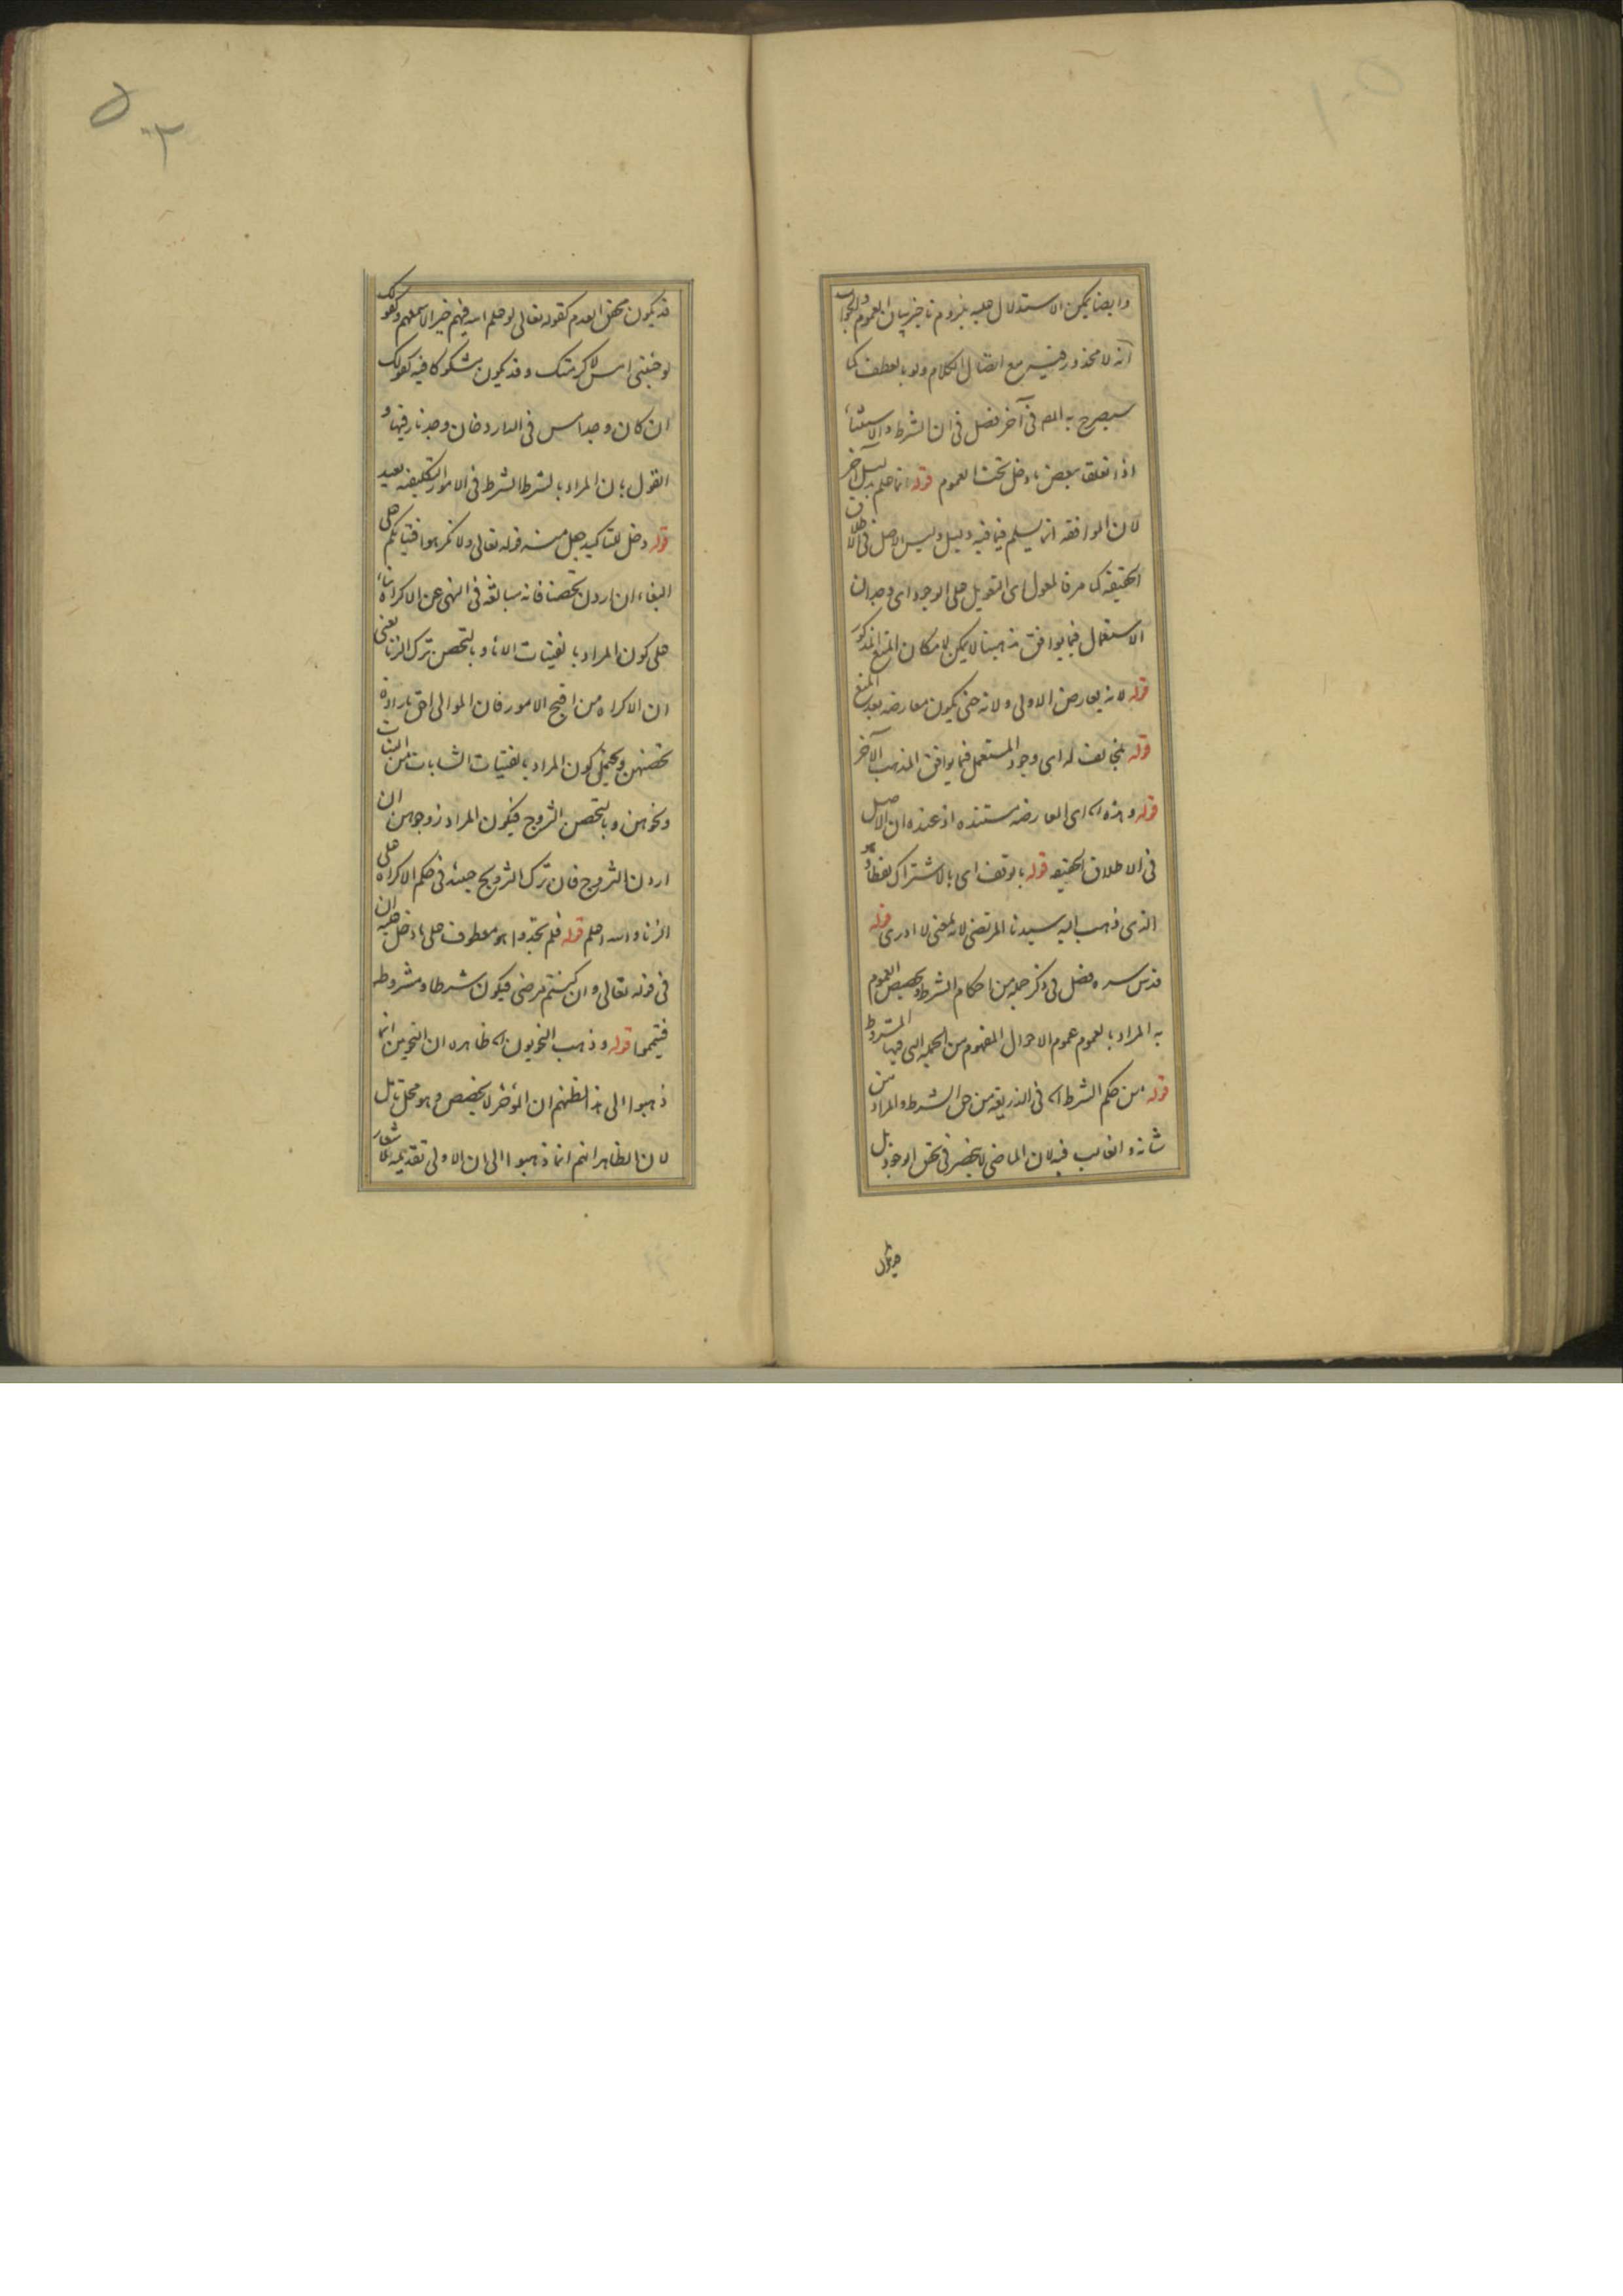 وایضا یمکن الاستدلال علیه بلزوم تاخیر بیان العموم والجواب
انه لا محذور فیه مع اتصال الکلام ولو بالعطف کما
سیصرح به المصـ فی آخر فصل فی ان الشرط والاستثناء
اذا تعلقا ببعض ما دخل تحت العموم قوله انما علم بدلیل آخر
لان الموافقه انما یسلم فیما فیه دلیل ولیس الاصل فی الاطلاق
الحقیقه کما مر فالمعول ای التعویل علی الوجود ای وجدان
الاستعمال فیما یوافق مذهبنا لا یمکن لامکان المنع المذکور
قوله لانه یعارض الاولی ولانه حتی یکون معارضه بعد المنع
قوله بمخالفـ له ای وجود المستعمل فیما یوافق المذهب الآخر
قوله وهذه اه ای المعارضه مستنده اذ عنده ان الاصل
فی الاطلاق الحقیقه قوله بالوقف ای بالاشتراک لفظا وهو
الذی ذهب الیه سیدنا المرتضی لا بمعنی لا ادری قوله
قدس سره فصل فی ذکر جمله من احکام الشرط وتخصیص العموم
به المراد بالعموم عموم الاحوال المفهوم من الجمله التی فیها المشروط
قوله من حکم الشرط اه فی الذریعه من حق الشرط والمراد من
شانه والغالب فیه لان الماضی لا ینحصر فی تحقق الوجود بل
قد یکون محقق العدم کقوله تعالی لو علم الله فیهم خیرا لاسمعهم وکقولک
لو جئتنی امس لاکرمتک وقد یکون مشکوکا فیه کقولک
ان کان وجد امس فی الدار دخان وجد نار فیها و
القول بان المراد بالشرط الشرط فی الامور التکلیفیه بعید
قوله دخل للتاکید جعل منه قوله تعالی ولا تکرهوا فتیاتکم علی
البغاء ان اردن تحصنا فانه مبالغه فی النهی عن الاکراه بناء
علی کون المراد بالفتیات الاماء وبالتحصن ترک الزنا یعنی
ان الاکراه من اقبح الامور فان الموالی احق بارادة
تحصنهن ویحتمل کون المراد بالفتیات الشابات من البنات
ونحوهن وبالتحصن التزوج فیکون المراد زوجوهن ان
اردن التزوج فان ترک التزویج حینئذ فی حکم الاکراه علی
الزنا والله اعلم قوله فلم تجدوا هو معطوف علی ما دخل علیه ان
فی قوله تعالی وان کنتم مرضی فیکون شرطا ومشروطه
فتیمموا قوله وذهب النحویون اه ظاهره ان النحویین انما
ذهبوا الی هذا لظنهم ان المؤخر لا یخصص وهو محل تامل
لان الظاهر انهم انما ذهبوا الی ان الاولی تقدیمه للاشعار